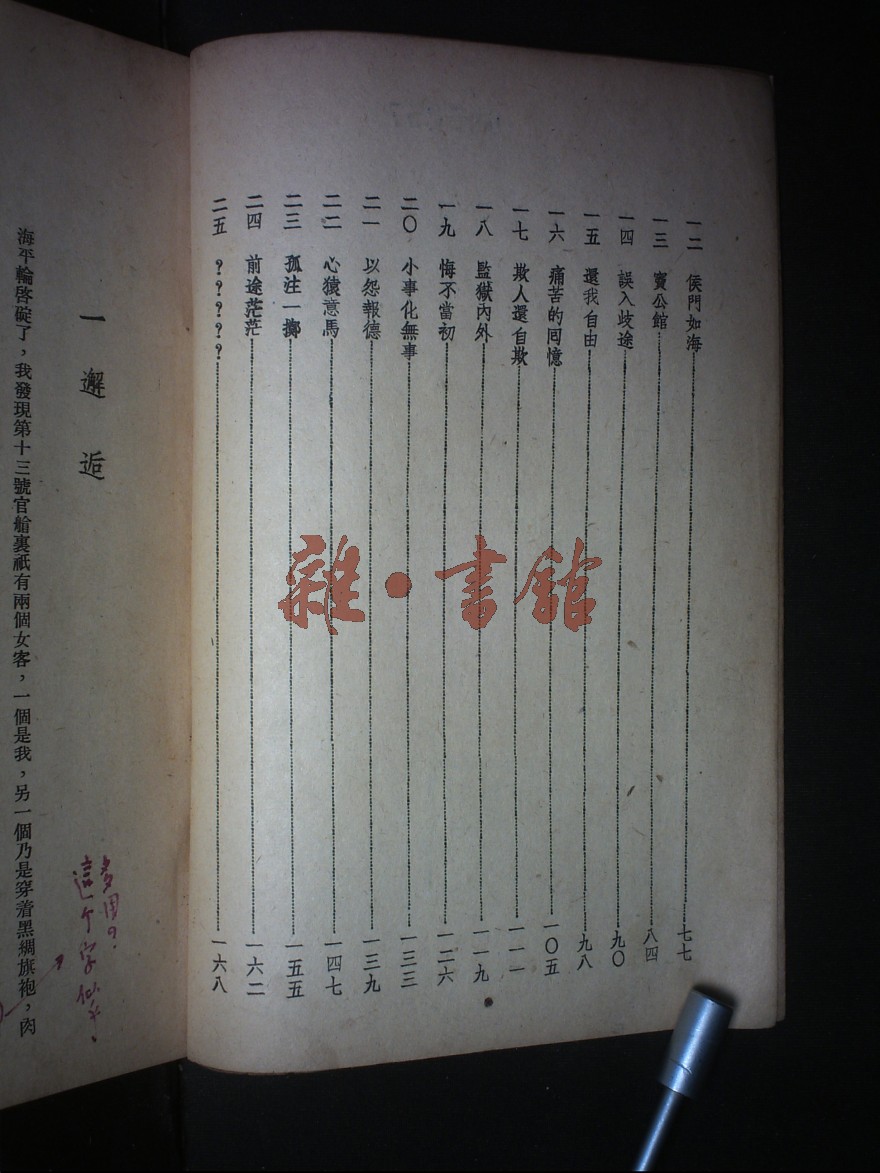 一二 侯門如海 七七
一三 竇公館 八四
一四 誤入歧途 九〇
一五 還我自由 九八
一六 痛苦的回憶 一〇五
一七 欺人還自欺 一一一
一八 監獄內外 一一九
一九 悔不當初 一二六
二〇 小事化無事 一三三
二一 以怨報德 一三九
二二 心猿意馬 一四七
二三 孤注一擲 一五五
二四 前途茫茫 一六二
二五 ????? 一六八
雜·書館
一 邂逅
海平輪啓碇了，我發現第十三號官艙裏祇有兩個女客，一個是我，另一個乃是穿着黑綢旗袍，肉
這个字似不